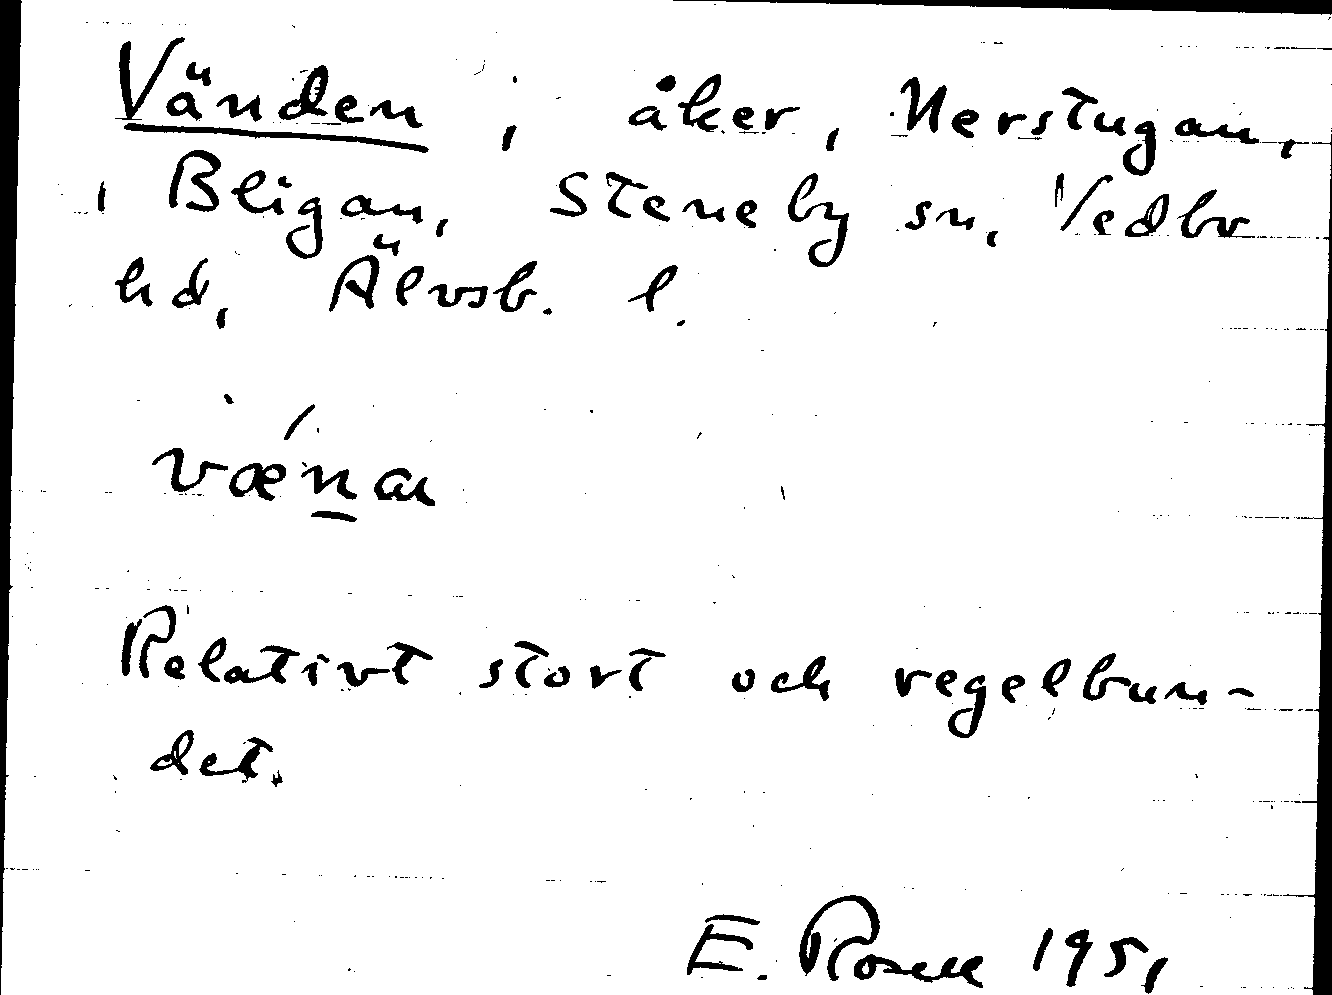 Vänden, åker, Nerstugan,
Bligan, Steneby sn, Vedbo
hd, Älvsb. l.
vǽn̲an
Relativt stort och regelbun-
det.
E. Rosell 1951